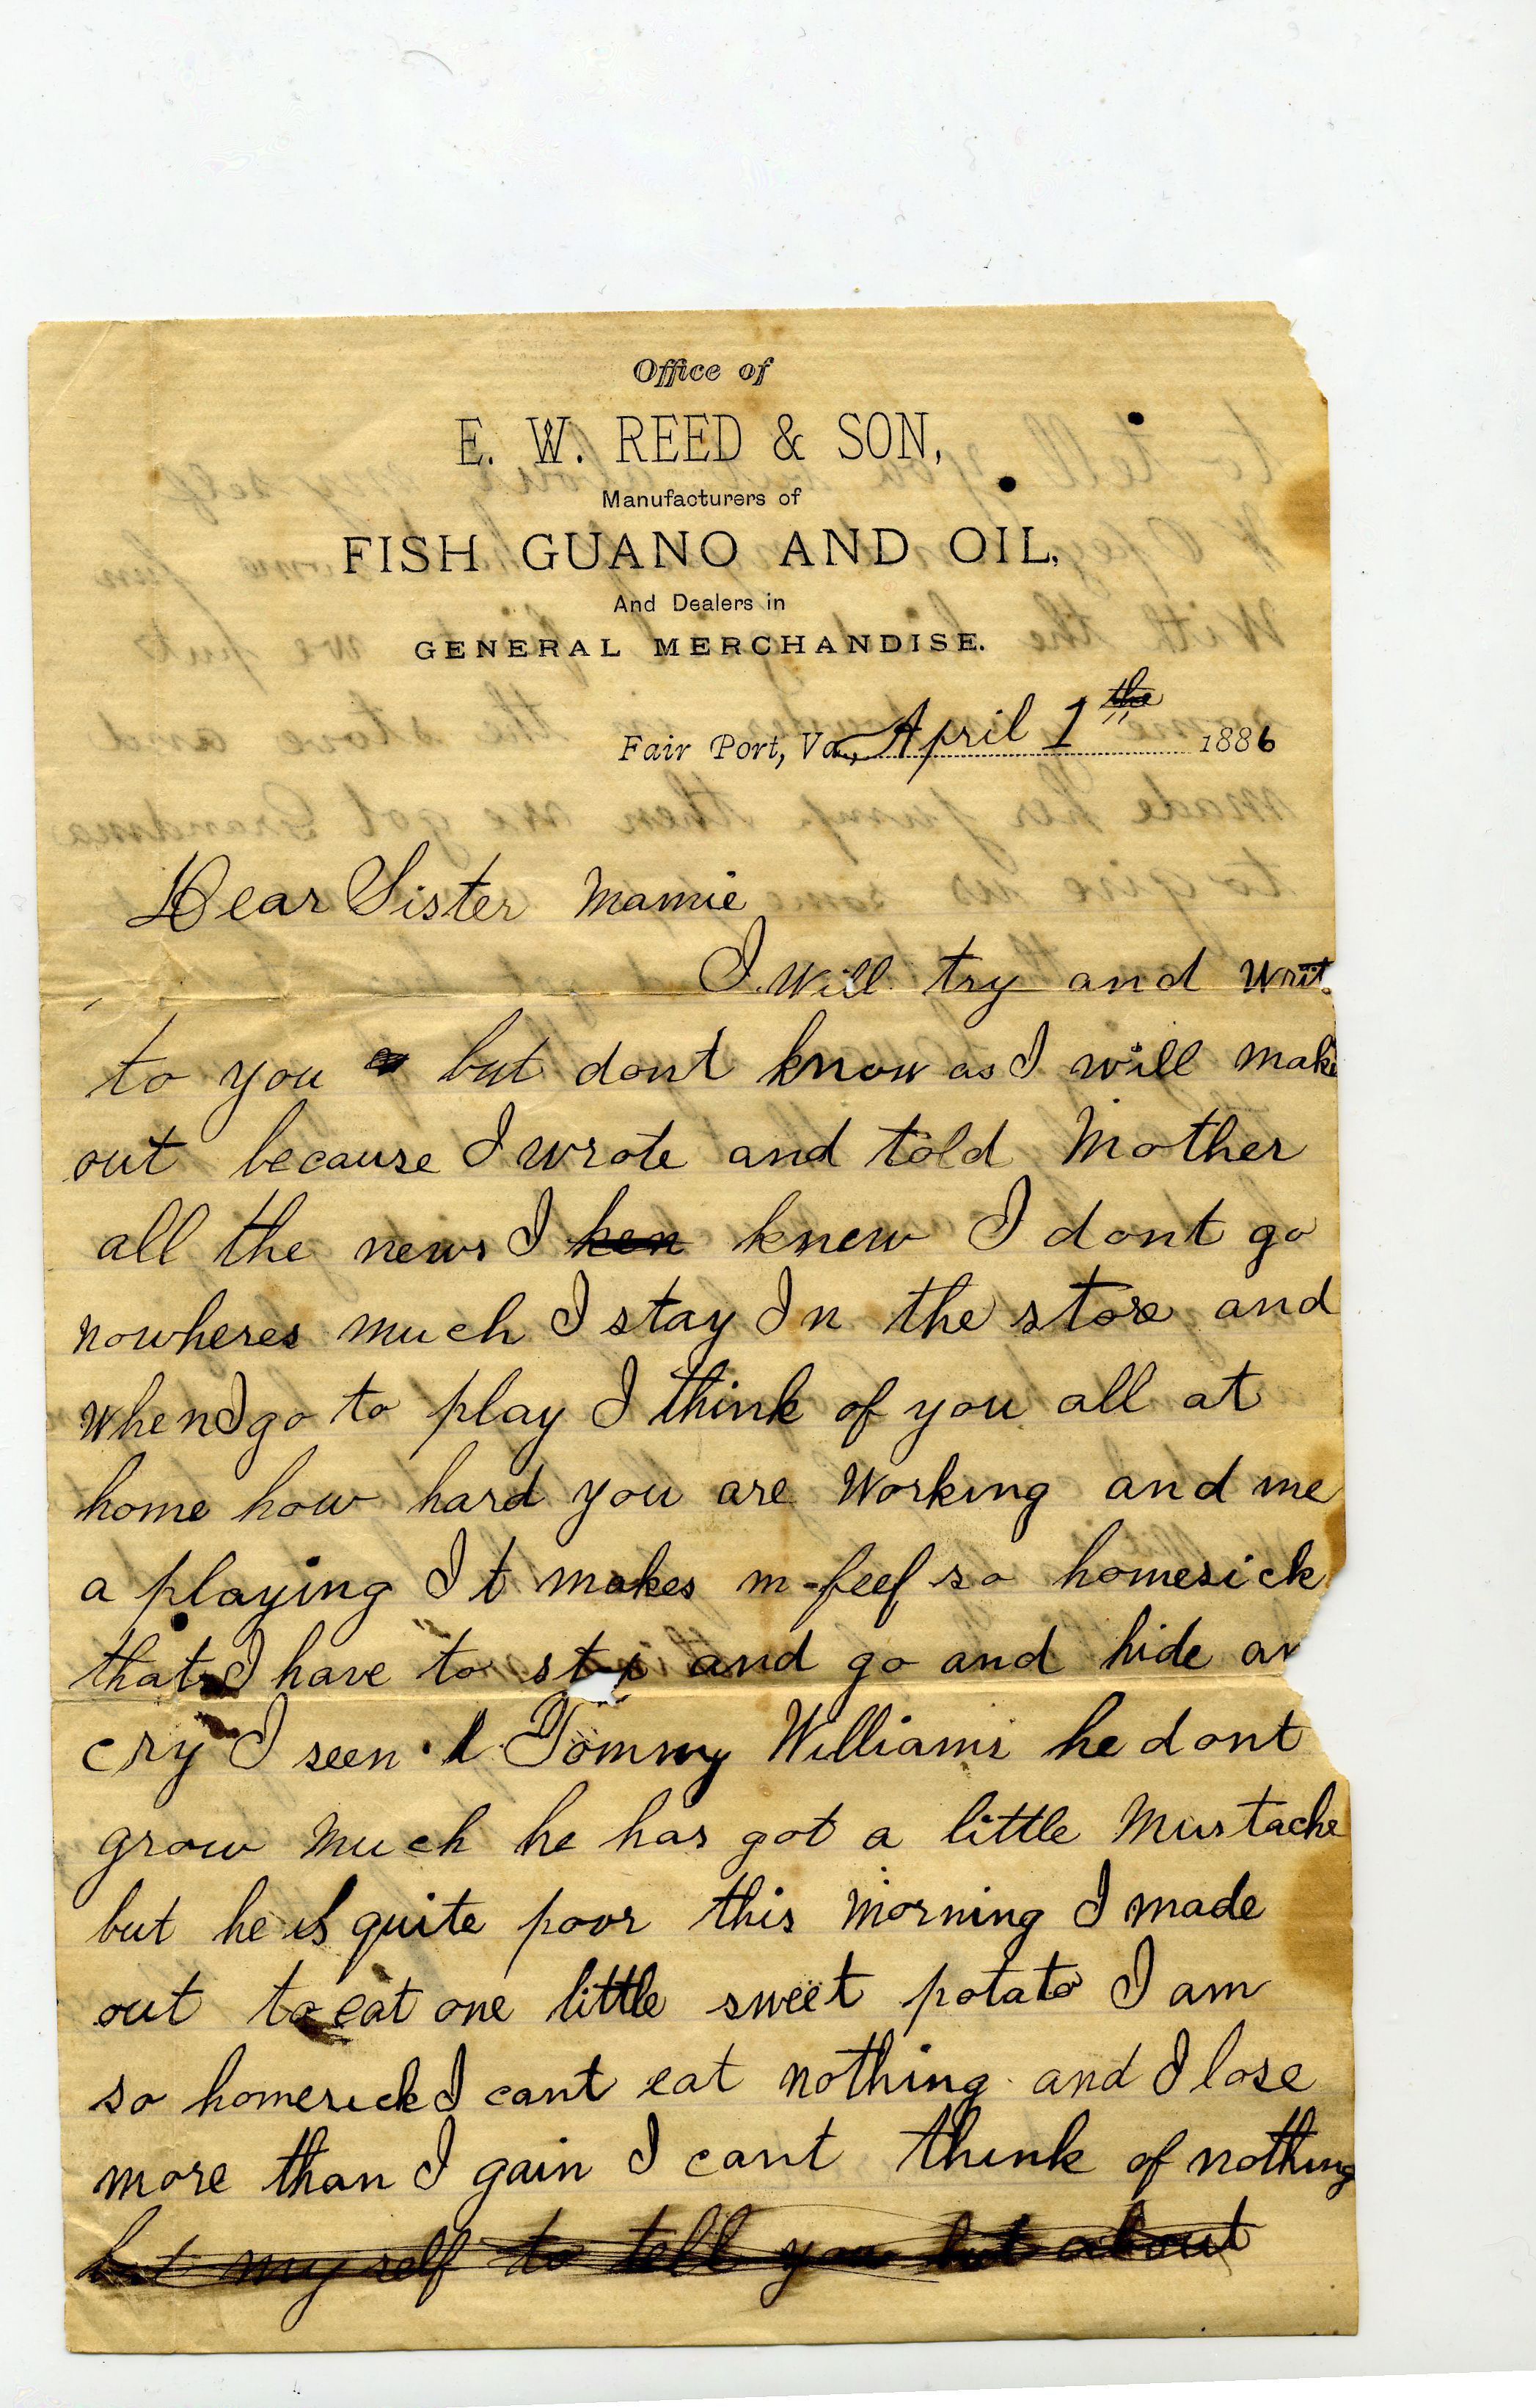 Office of
E. W. REED & SON,
Manufacturers of
FISH GUANO AND OIL,
And Dealers in
GENERAL MERCHANDISE.
Fair Port, Va., April 1 the 1886
Dear Sister Mamie
I will try and writ
to you but dont know as I will make
out because I wrote and told Mother
all the news I ken knew I dont go
nowheres much I stay In the store and
when I go to play I think of you all at
home how hard you are Working and me
a playing It makes m feel so homesick
that I have to stop and go and hide an
cry I seen Tommy Williams he dont
grow much he has got a little Mustache
but he is quite poor this morning I made
out to eat one little sweet potato I am
so homesick I cant eat nothing and I lose
more than I gain I cant think of nothing
but my self to tell you but about